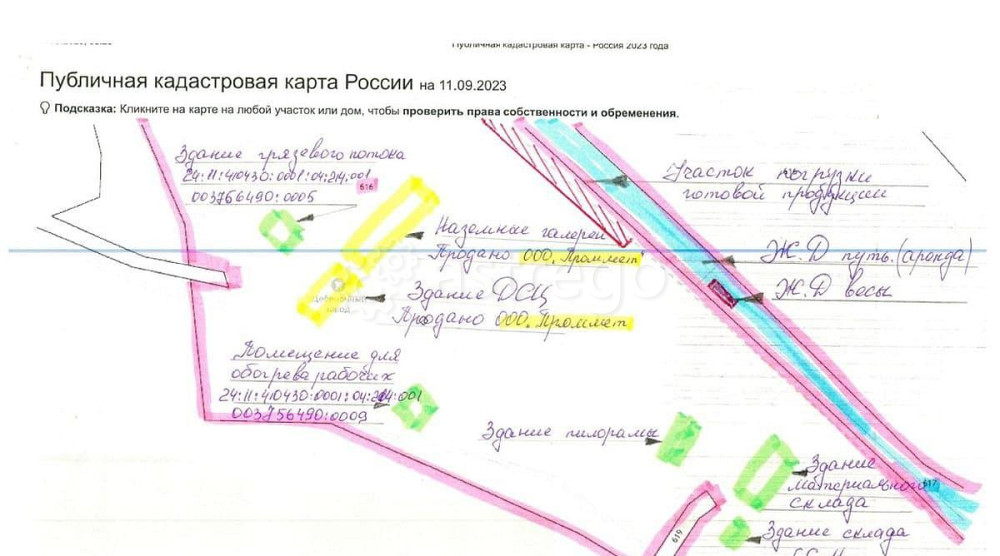 Публичная кадастровая карта - Россия 2023 года
Публичная кадастровая карта России на 11.09.2023
Подсказка: Кликните на карте на любой участок или дом, чтобы проверить права собственности и обременения.
Здание грязевого потока
24:11:410430:0001:04:214:001
003756490:0005
616
Участок погрузки
готовой продукции
Наземные галереи
Продано ООО,, Проммет"
Ж.Д путь. (аренда)
Ж.Д весы
Здание ДСЦ
Продано ООО,, Проммет"
Помещение для
обогрева рабочих
24:11:410430:0001:04:214:001
003756490:0009
Здание пилорамы
Здание
материального
склада
617
619
Здание склада